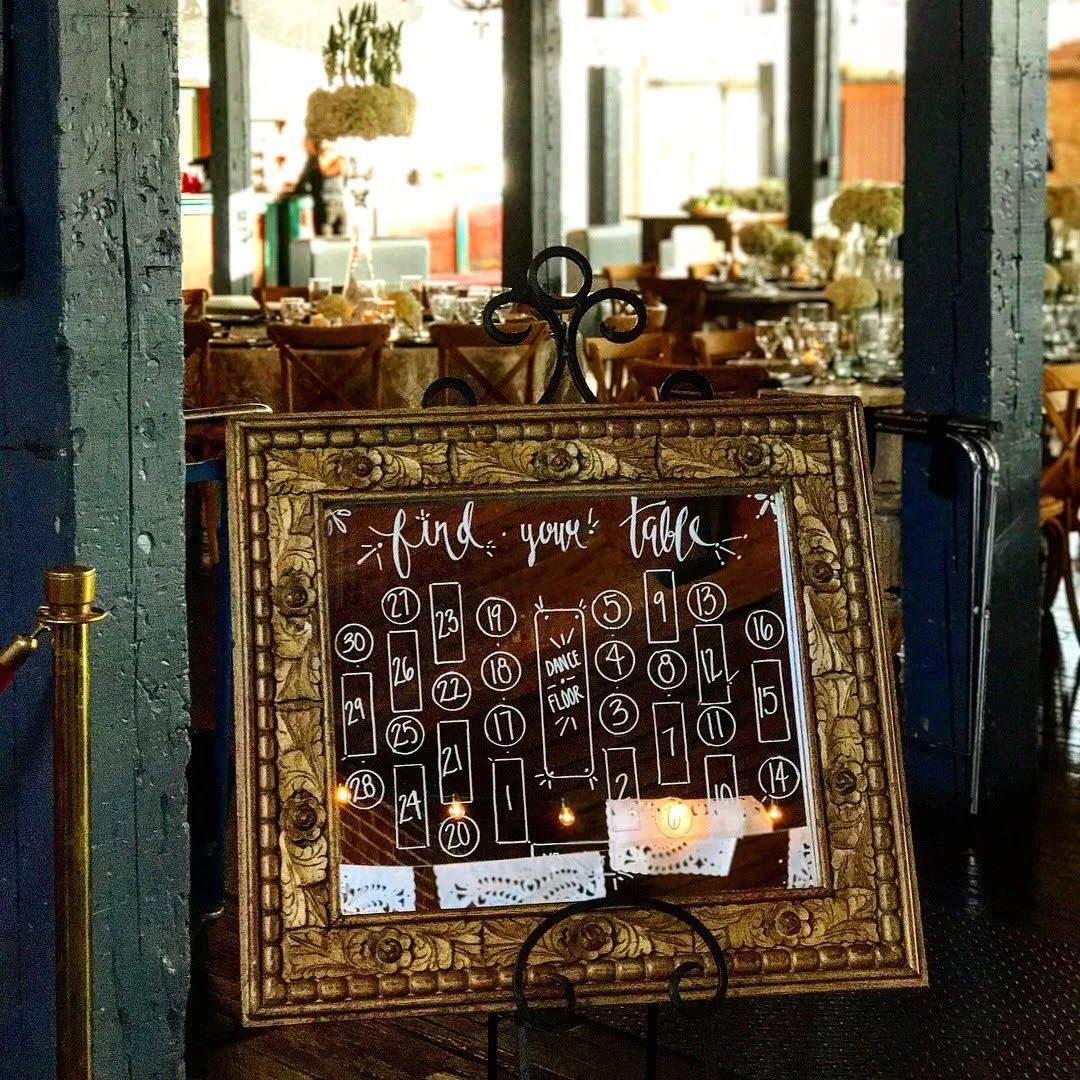 find your! table
30
29
28
27
26
25
24
23
22
21
20
19
18
17
1
DANCE
FLOOR
5
4
3
2
9
8
7
6
13
12
11
10
16
15
14